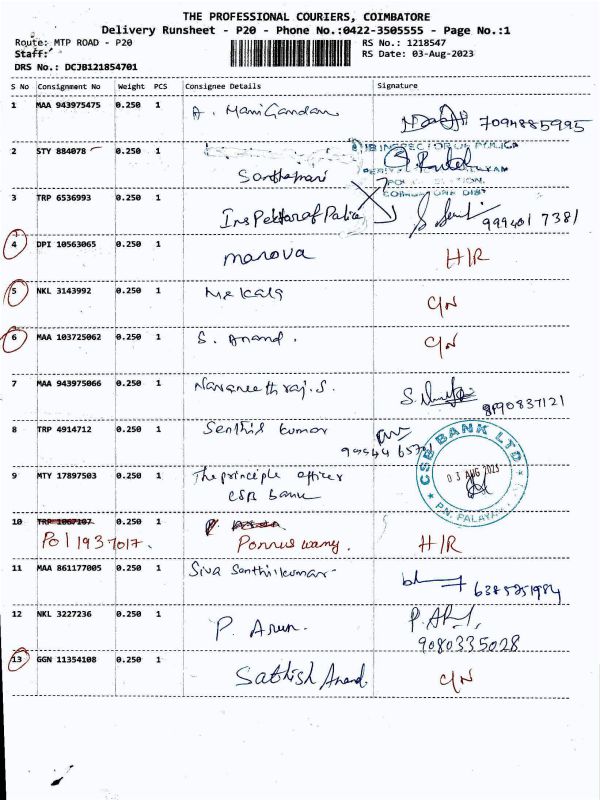 THE PROFESSIONAL COURIERS, COIMBATORE
Delivery Runsheet - P20 - Phone No.:0422-3505555 - Page No.:1
Route: MTP ROAD - P20 RS No.: 1218547
Staff: RS Date: 03-Aug-2023
DRS No.: DCJB121854701
S No Consignment No Weight PCS Consignee Details Signature
1 MAA 943975475 0.250 1 A. ManiGandan 7094885995
2 STY 884078 0.250 1 Santhamani
SUB INSPECTOR OF POLICE
POLICE STATION,
COIMBATORE DIST
3 TRP 6536993 0.250 1 Inspektor of Police 999401 7381
4 DPI 10563065 0.250 1 manova H/R
5 NKL 3143992 0.250 1 Mekala C/N
6 MAA 103725062 0.250 1 S. Anand. C/N
7 MAA 943975066 0.250 1 Navaneethraj.S. 8190837121
8 TRP 4914712 0.250 1 Senthil kumar
9 MTY 17897503 0.250 1 The principle officer
CSB bank
CSB BANK LTD
03 AUG 2023
P.N. PALAYAM
10 TRP 1067107 0.250 1
POI 1937017. Ponnuswamy. H/R
11 MAA 861177005 0.250 1 Siva Senthilkumar
12 NKL 3227236 0.250 1 P. Arun. P. ARul,
9080335028
13 GGN 11354108 0.250 1 Sathish Anand C/N